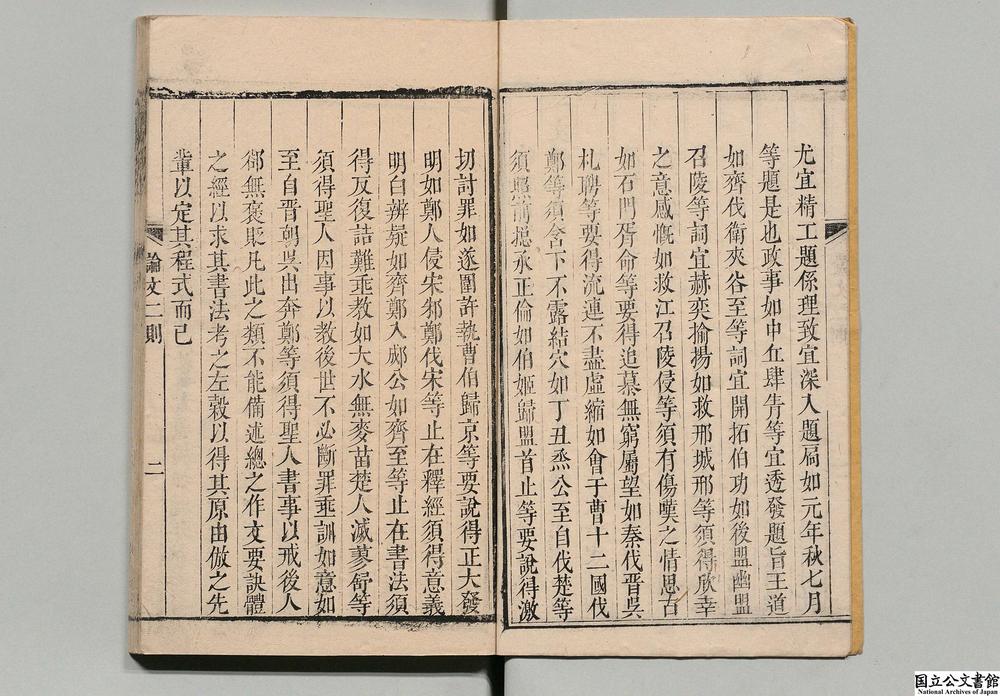 尤宜精工題係理致宜深入題扃如元年秋七月
等題是也政事如中丘肆眚等宜透發題旨王道
如齊伐衛夾谷至等詞宜開拓伯功如後盟幽盟
召陵等詞宜赫奕揄揚如救邢城邢等須得欣幸
之意感慨如救江召陵侵等須有傷嘆之情思古
如石門胥命等要得追慕無窮屬望如秦伐晉吳
札聘等要得流連不盡虛縮如會于曹十二國伐
鄭等須含下不露結穴如丁丑烝公至自伐楚等
須照前挹承正倫如伯姬歸盟首止等要說得激
切討罪如遂圍許執曹伯歸京等要說得正大發
明如鄭人侵宋邾鄭伐宋等止在釋經須得意義
明白辨疑如齊鄭入郕公如齊至等止在書法須
得反復詰難垂教如大水無麥苗楚人滅蓼舒等
須得聖人因事以教後世不必斷罪垂訓如意如
至自晉朝吳出奔鄭等須得聖人書事以戒後人
却無褒貶凡此之類不能備述總之作文要訣體
之經以求其書法考之左穀以得其原由倣之先
軰以定其程式而已
論文二則
二
国立公文書館
National Archives of Japan